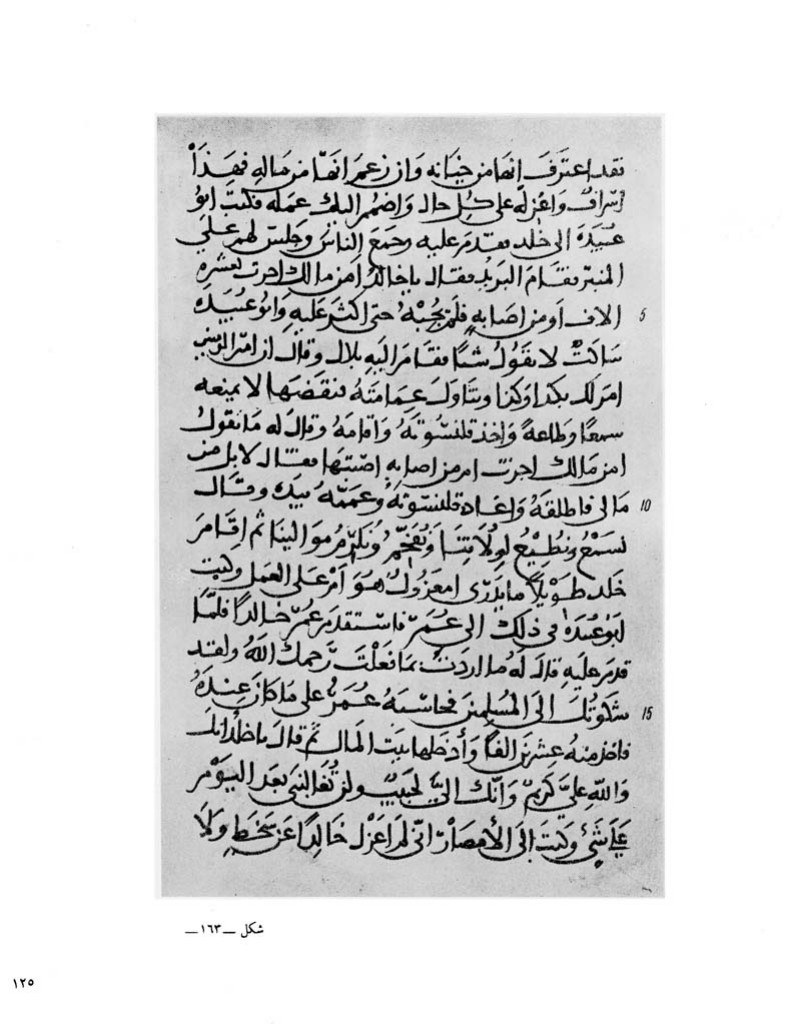 فقد اعترف انها من خيانه وان زعم انها من ماله فهذا
اسراف واعزله على كل حال واضمم اليك عمله فكتب ابو
عبيدة الى خلد فقدم عليه وجمع الناس وجلس لهم على
المنبر فقام البريد فقال يا خالد امن مالك اجزت بعشرة
الاف او من اصابه فلم يجبه حتى اكثر عليه وابو عبيدة
5
ساكت لا يقول شيا فقام اليه بلال وقال ان امير المؤمنين
امر لك بكذا وكذا وتناول عمامته فنقضها لا يمنعه
سمعا وطاعة واخذ قلنسوته واقامه وقال له ما تقول
امن مالك اجزت ام من اصابه اصبتها فقال لا بل من
مالى فاطلقه واعاد قلنسوته وعممه بيده وقال
10
نسمع ونطيع لولاتنا ونفخم ونكرم موالينا ثم اقام
خلد طويلا ما يدرى امعزول هو ام على العمل وكتب
ابو عبيدة فى ذلك الى عمر فاستقدم عمر خالدا فلما
قدم عليه قال له ما اردت بما فعلت رحمك الله ولقد
شكوتك الى المسلمين فحاسبه عمر على ما كان عنده
15
فاخذ منه عشرين الفا وادخلها بيت المال ثم قال يا خلد انك
والله على كريم وانك الى لحبيب ولن تعاتبنى بعد اليوم
على شئ وكتب الى الامصار انى لم اعزل خالدا عن سخط ولا
شكل ــ١٦٣ــ
١٢٥